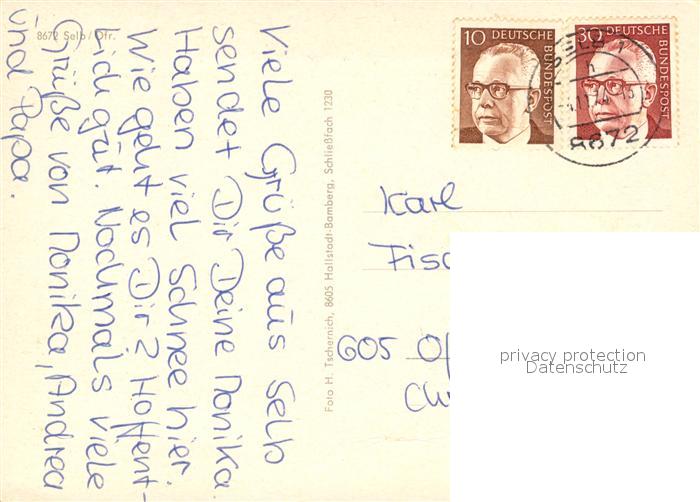 8672 Selb/Ofr.
Viele Grüße aus Selb
sendet Dir Deine Monika.
Haben viel Schnee hier.
Wie geht es Dir? Hoffent-
lich gut. Nochmals viele
Grüße von Monika, Andrea
und Papa.
Foto H. Tschernich, 8605 Hallstadt-Bamberg, Schließfach 1230
10 DEUTSCHE BUNDESPOST
30 DEUTSCHE BUNDESPOST
SELB 1
8672
Karl
Fisc
605 Of
privacy protection
Datenschutz